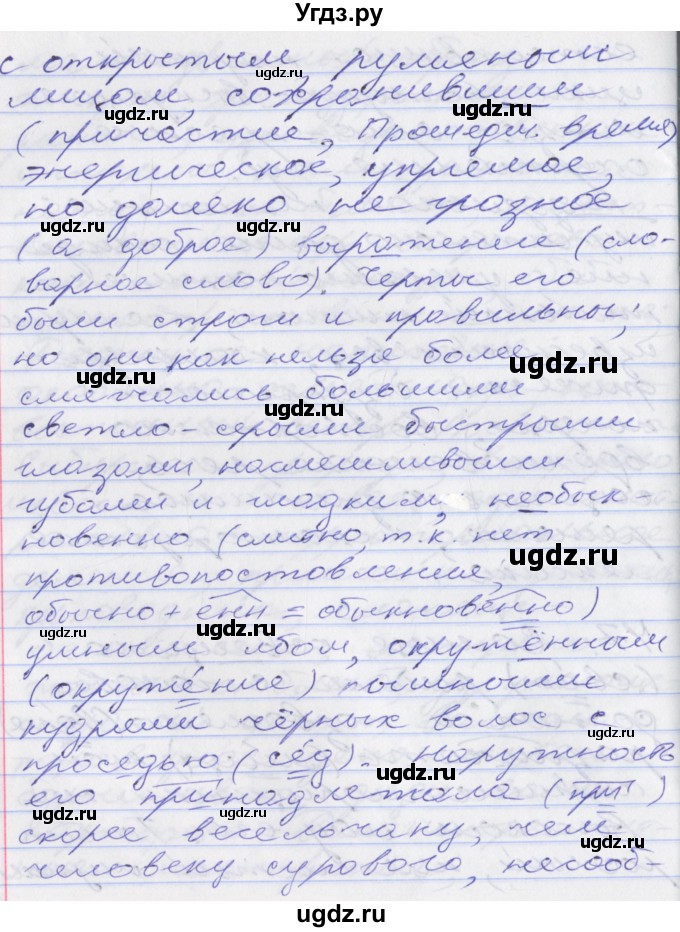 Угдз.ру
с открытым, румяным
лицом, сохранившим
(причастие, Прошедш. время)
энергическое, упрямое,
но далеко не грозное
(а доброе) выражение (сло-
варное слово). Черты его
были строги и правильны;
но они как нельзя более
смягчались большими
светло-серыми быстрыми
глазами, насмешливыми
губами и гладким, необык-
новенно (слитно, т.к. нет
противопоставления;
обычно + енн = обыкновенно)
умным лбом, окружённым
(окружение) пышными
кудрями чёрных волос с
проседью (сед). Наружность
его принадлежала (при)
скорее весельчаку, чем
человеку сурового, несооб-
ugdz.ru